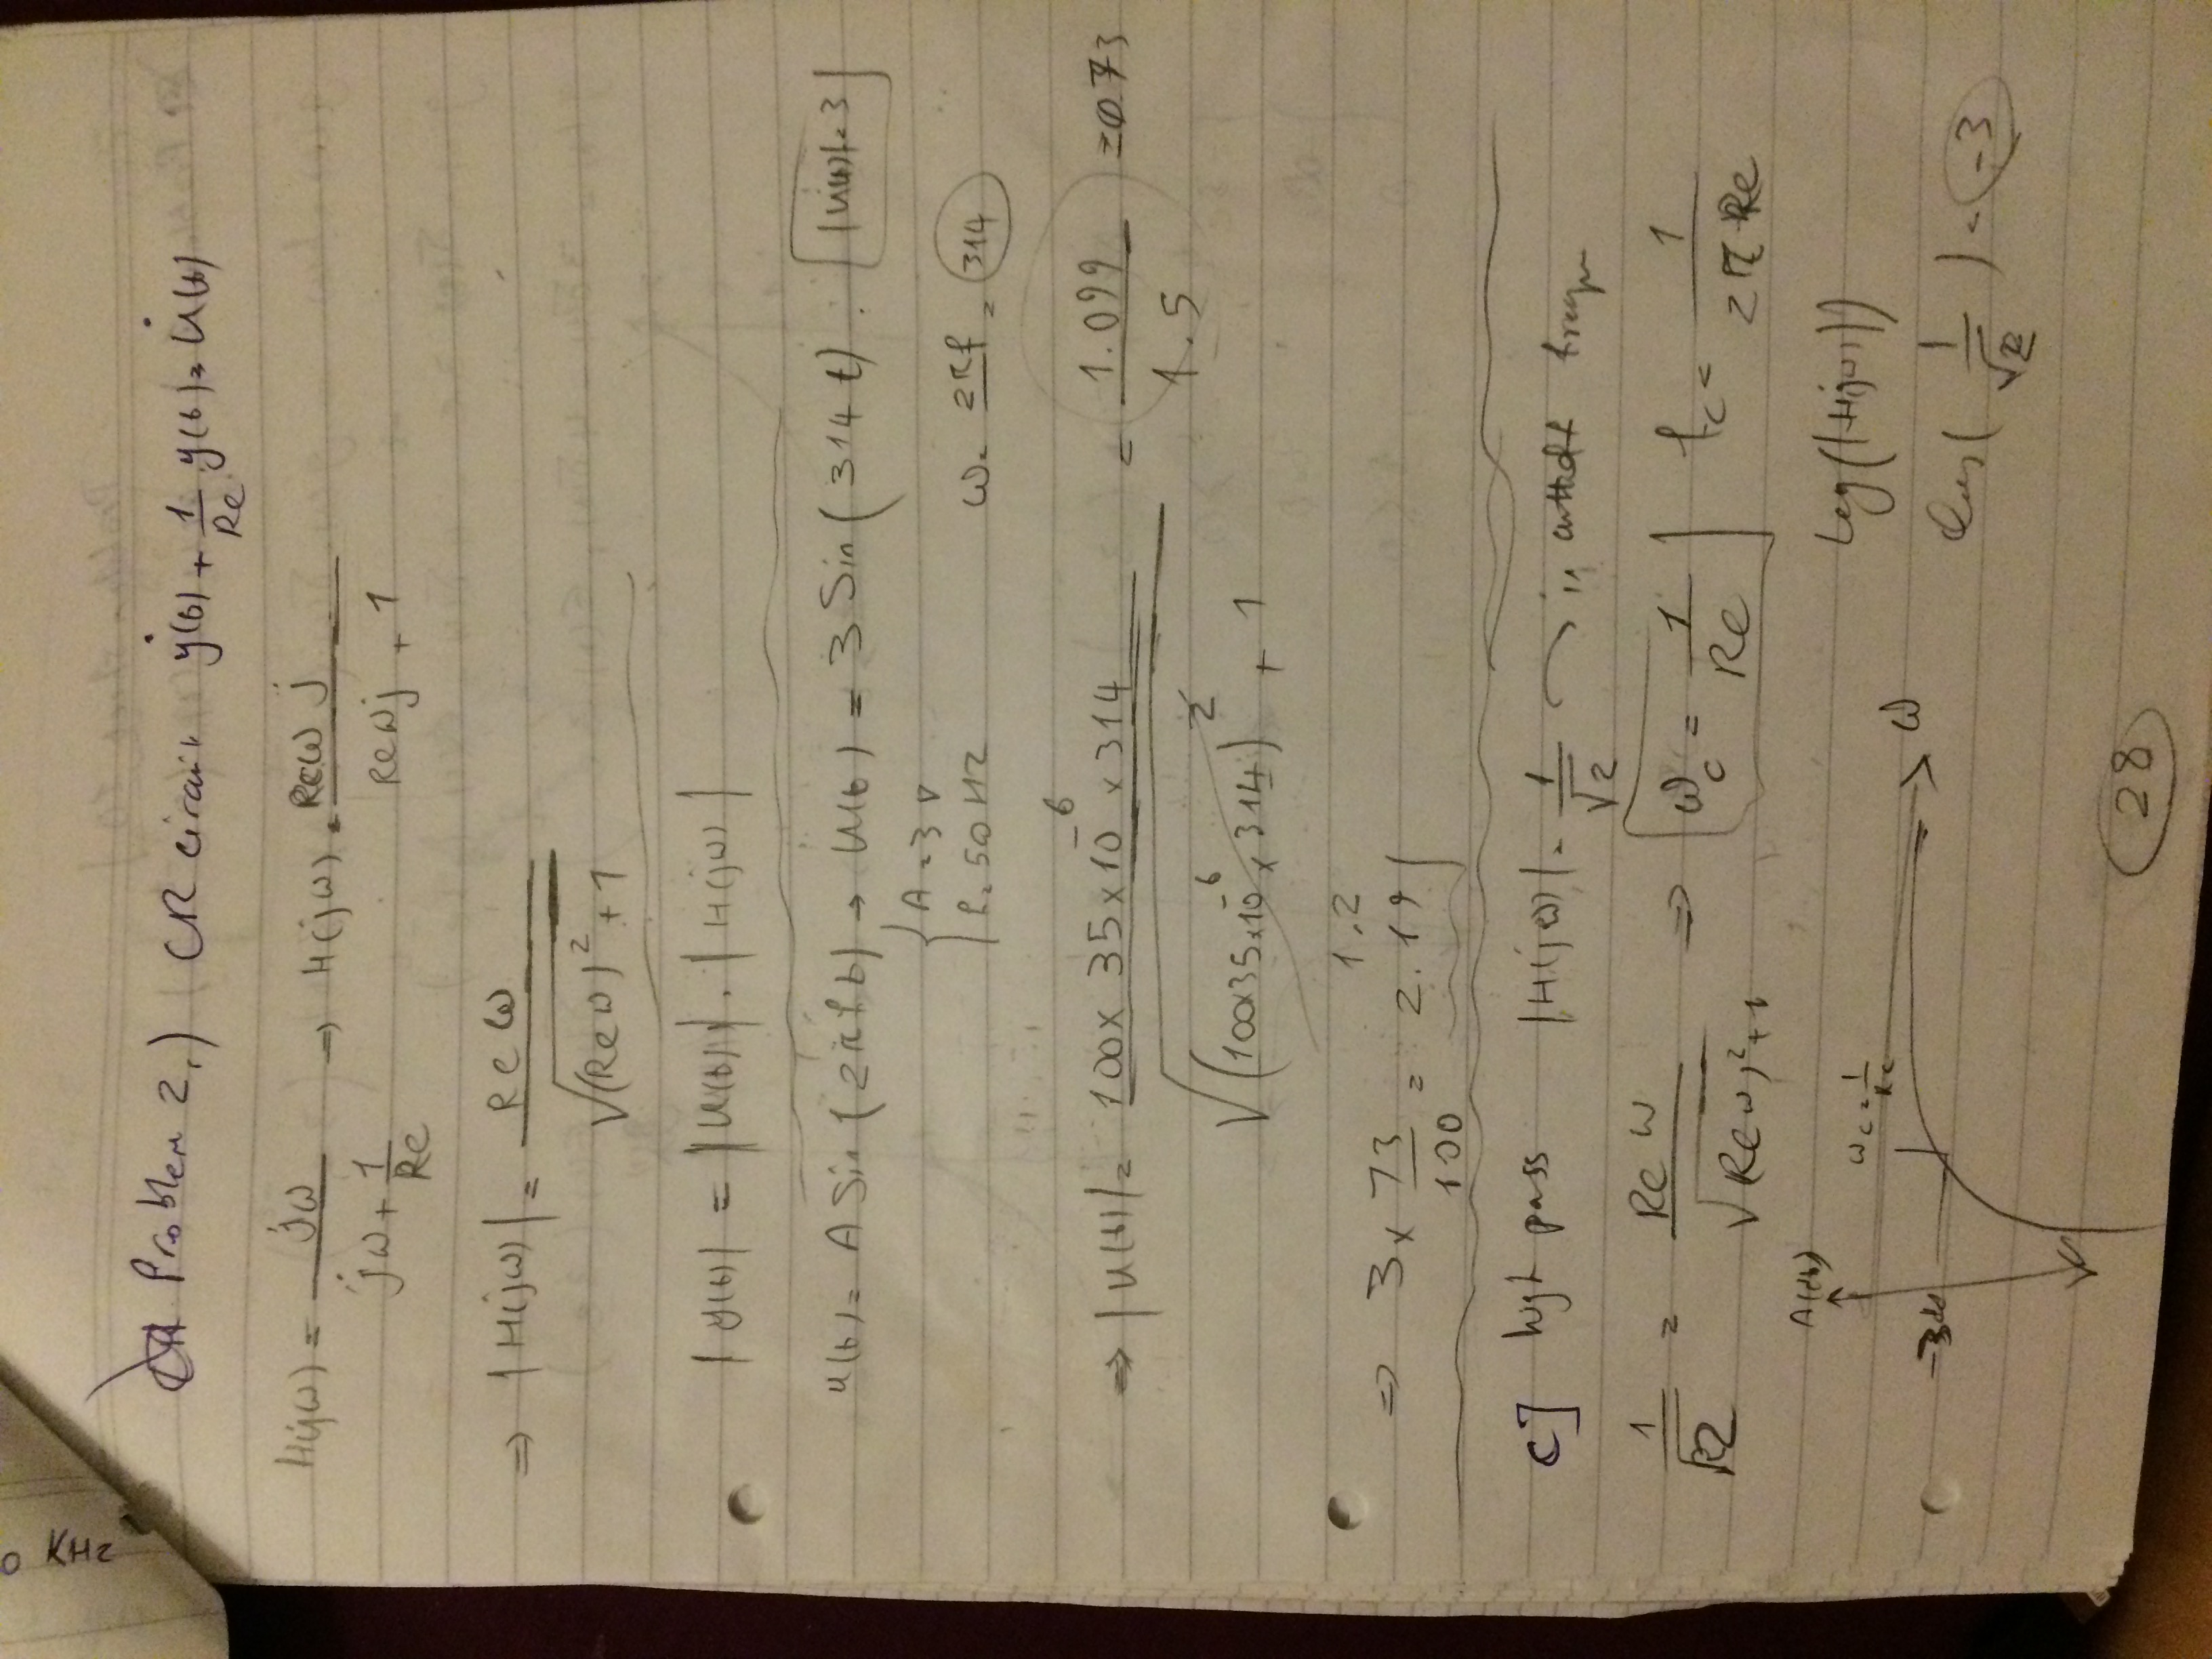 0 KHz
Problem 2.) CR circuit ẏ(t) + 1/Rc . y(t) = u̇(t)
H(jω) = jω / (jω + 1/Rc) ⇒ H(jω) = Rcω j / (Rcωj + 1)
⇒ |H(jω)| = Rcω / √((Rcω)² + 1)
|y(t)| = |u(t)| . |H(jω)|
u(t) = A Sin(2πft) → u(t) = 3 Sin(314 t) . |u(t)| = 3
A = 3 v
f = 50 Hz ω = 2πf = 314
⇒ |u(t)| = 100 x 35 x 10⁻⁶ x 314 / √((100x35x10⁻⁶ x 314)² + 1) = 1.099 / 1.5 = 0.73
1.2
⇒ 3 x 73/100 = 2.19
c] high pass |H(jω)| = 1/√2 in cuttoff frequ
1/√2 = Rcω / √((Rcω)² + 1) ⇒ ωc = 1/Rc fc = 1/2πRc
A(db)
ωc = 1/Rc
Log(|H(jω)|)
-3db ω
( 1/√2 ) = -3
28